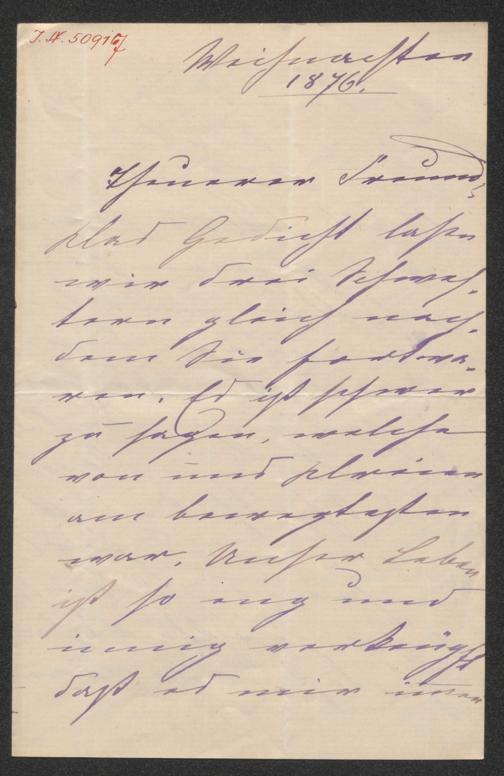 J.N. 50917
Weihnachten
1876.
Theuerer Freund,
das Gedicht lasen
wir drei Schwes-
tern gleich nach-
dem Sie fortwa-
ren. Es ist schwer
zu sagen, welche
von uns
am bewegtesten
war. Unser Leben
ist so eng und
innig verknüpft
daß es mir immer